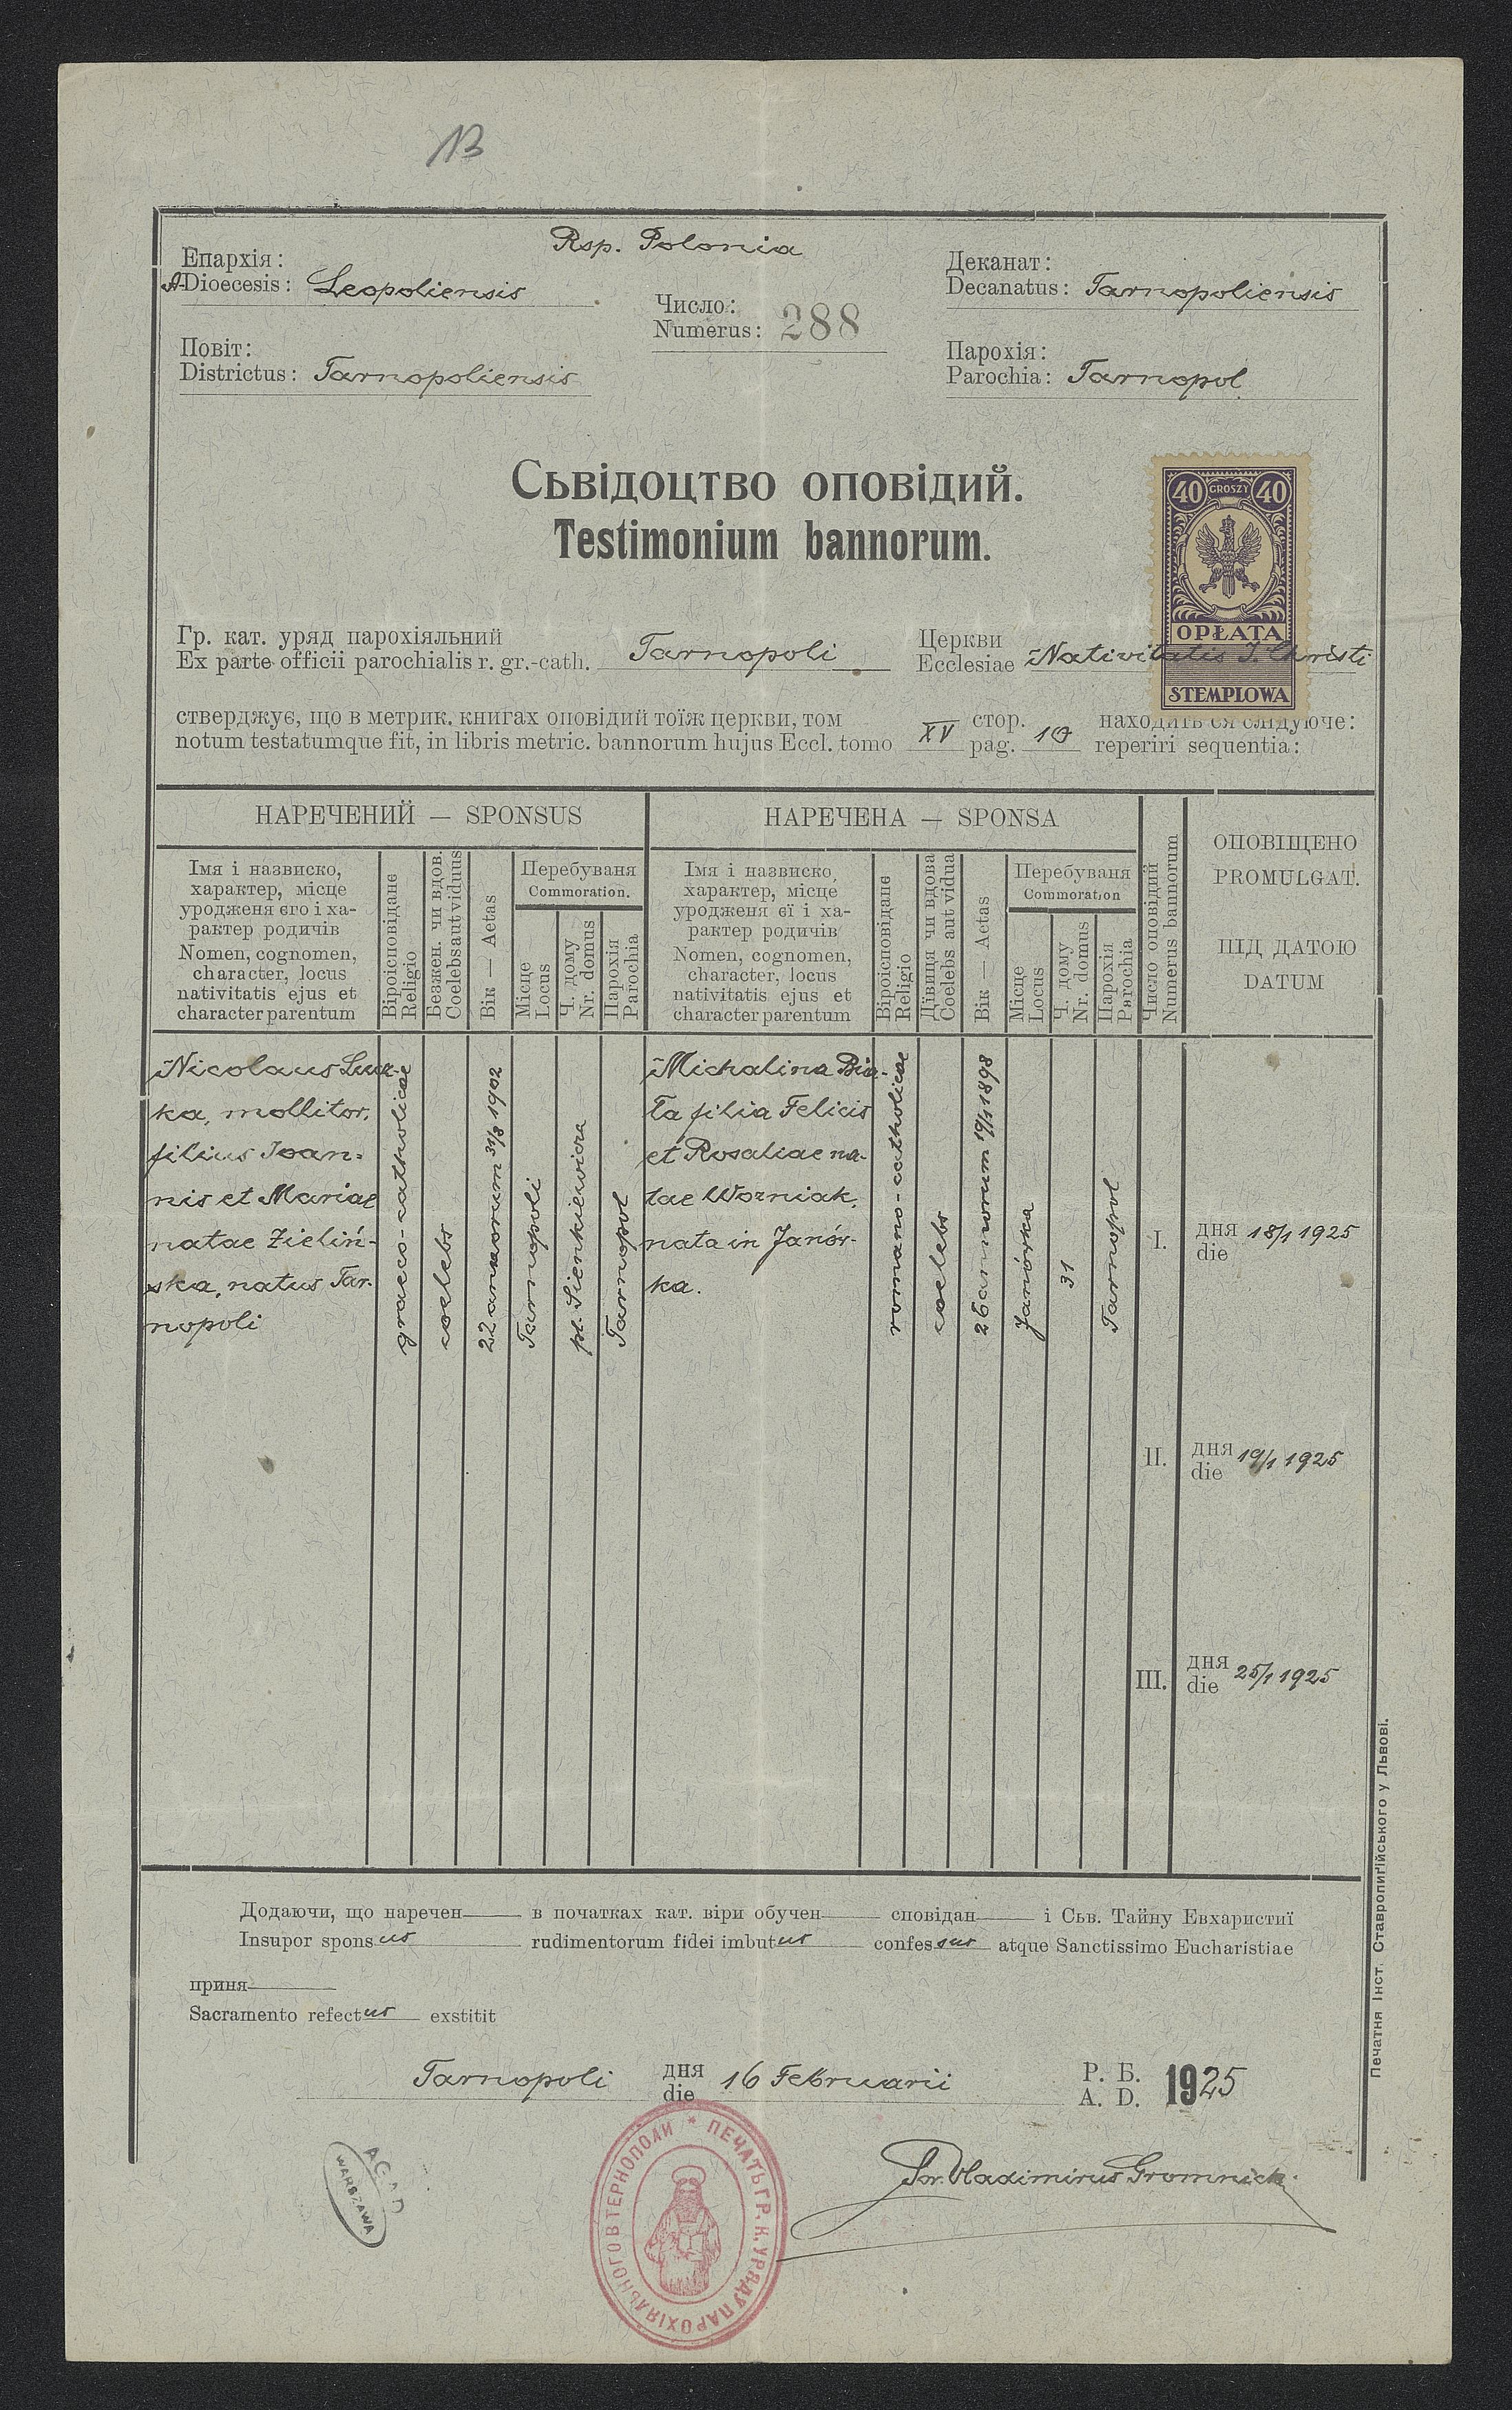 13
Rsp. Polonia
Епархія:
A-Dioecesis: Leopoliensis
Деканат:
Decanatus: Tarnopoliensis
Число:
Numerus: 288
Повіт:
Districtus: Tarnopoliensis
Парохія:
Parochia: Tarnopol
Сьвідоцтво оповідий.
Testimonium bannorum.
40 GROSZY 40
OPŁATA
STEMPLOWA
Гр. кат. уряд парохіяльний
Ex parte officii parochialis r. gr.-cath. Tarnopoli
Церкви
Ecclesiae Nativitatis J. Christi
стверджує, що в метрик. книгах оповідий тоїж церкви, том XV стор. 10 находить ся слідуюче:
notum testatumque fit, in libris metric. bannorum hujus Eccl. tomo pag. reperiri sequentia:
НАРЕЧЕНИЙ — SPONSUS
НАРЕЧЕНА — SPONSA
Імя і назвиско,
характер, місце
уродженя єго і ха-
рактер родичів
Nomen, cognomen,
character, locus
nativitatis ejus et
character parentum
Віроісповіданє
Religio
Безжен. чи вдов.
Coelebs aut viduus
Вік — Aetas
Перебуваня
Commoration.
Місце
Locus
Ч. дому
Nr. domus
Парохія
Parochia
Імя і назвиско,
характер, місце
уродженя єї і ха-
рактер родичів
Nomen, cognomen,
character, locus
nativitatis ejus et
character parentum
Віроісповіданє
Religio
Дівиця чи вдова
Coelebs aut vidua
Вік — Aetas
Перебуваня
Commoration
Місце
Locus
Ч. дому
Nr. domus
Парохія
Parochia
Число оповідий
Numerus bannorum
ОПОВІЩЕНО
PROMULGAT.
ПІД ДАТОЮ
DATUM
Nicolaus
ka, mollitor,
filius Joan-
nis et Mariae
natae Zieliń-
ska, natus Tar-
nopoli
graeco-catholicae
coelebs
22 annorum 31/8 1902
Tarnopoli
pl. Sienkiewicza
Tarnopol
Michalina Bia-
ła filia Felicis
et Rosaliae na-
tae Wozniak,
nata in Janów-
ka.
romano-catholicae
coelebs
26 annorum 19/1 1898
Janówka
31
Tarnopol
I. дня
die 18/1 1925
II. дня
die 19/1 1925
III. дня
die 25/1 1925
Додаючи, що наречен в початках кат. віри обучен сповідан і Сьв. Тайну Евхаристиї
Insupor sponsus rudimentorum fidei imbutus confessus atque Sanctissimo Eucharistiae
приня
Sacramento refectus exstitit
Tarnopoli дня
die 16 Februarii Р. Б.
A. D. 1925
Vladimirus Gromnicki
AGAD
WARSZAWA
* ПЕЧАТЬ ГР. К. УРЯДУ ПАРОХІЯЛЬНОГО В ТЕРНОПОЛИ
Печатня Інст. Ставропигійського у Львові.